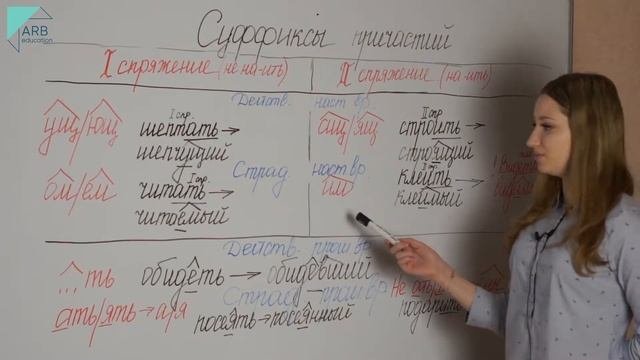 ARB
education
Суффиксы причастий
I спряжение (не на -ить)
II спряжение (на -ить)
Действ. наст вр.
ущ/ющ
I спр.
шептать →
шепчущий
ащ/ящ
II спр.
строить →
строящий
Страд. наст вр.
ом/ем
I спр.
читать →
читаемый
им
клеить →
клеимый
Действ. прош вр.
...ть
обидеть → обидевший
Страд. прош вр.
ать/ять → а/я
посеять → посеянный
Не